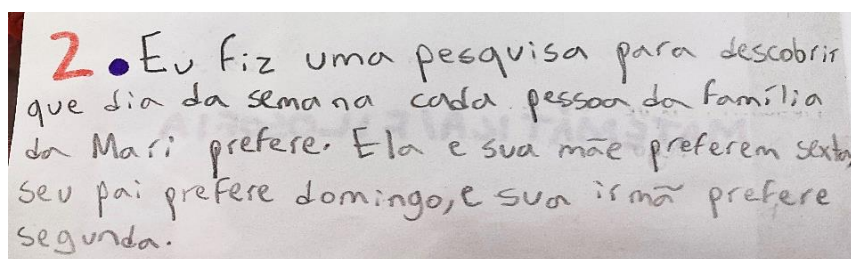 2. Eu fiz uma pesquisa para descobrir
que dia da semana cada pessoa da família
da Mari prefere. Ela e sua mãe preferem sexta,
seu pai prefere domingo, e sua irmã prefere
segunda.